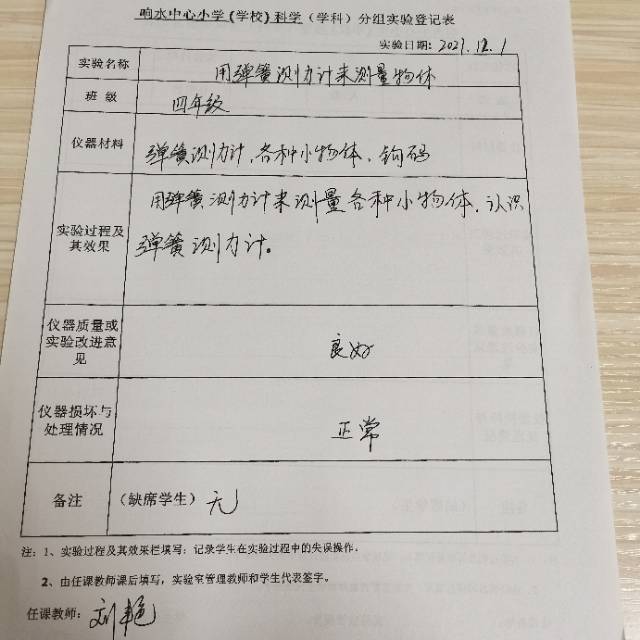 响水中心小学(学校)科学(学科)分组实验登记表
实验日期:2021.12.1
实验名称 用弹簧测力计来测量物体
班 级 四年级
仪器材料 弹簧测力计、各种小物体、钩码
用弹簧测力计来测量各种小物体,认识
实验过程及
其效果
弹簧测力计。
仪器质量或
实验改进意
见
良好
仪器损坏与
处理情况
正常
备注 (缺席学生) 无
注:1、实验过程及其效果栏填写:记录学生在实验过程中的失误操作。
2、由任课教师课后填写,实验室管理教师和学生代表签字。
任课教师:刘艳